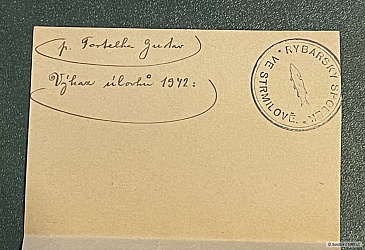 p. Fortelka Gustav
Výkaz úlovků 1942:
· RYBÁŘSKÝ SPOLEK · VE STRMILOVĚ.